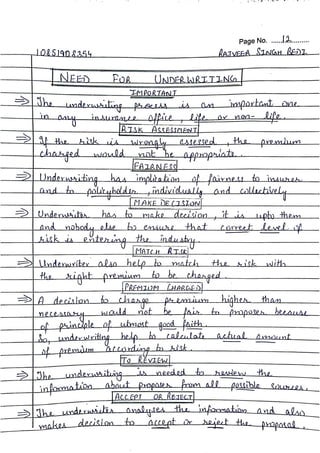 Page No. 12
10851908354 RAJVEER SINGH BEDI
NEED FOR UNDERWRITING
IMPORTANT
⇒ The underwriting process is an important one
in any insurance office, life or non-life.
RISK ASSESSMENT
⇒ If the risk is wrongly assessed, the premium
charged would not be appropriate.
FAIRNESS
⇒ Underwriting has implication of fairness to insurer
and to policyholder, individually and collectively
MAKE DECISION
⇒ Underwriter has to make decision, it is upto them
and nobody else to ensure that correct level of
risk is entering the industry.
MATCH RISK
⇒ Underwriter also help to match the risk with
the right premium to be charged.
PREMIUM CHARGED
⇒ A decision to charge premium higher than
necessary would not be fair to proposer because
of principle of utmost good faith.
So, underwriting help to calculate actual amount
of premium according to risk.
TO REVIEW
⇒ The underwriting is needed to review the
information about proposer from all possible sources.
ACCEPT OR REJECT
⇒ The underwriter analyses the information and also
makes decision to accept or reject the proposal.